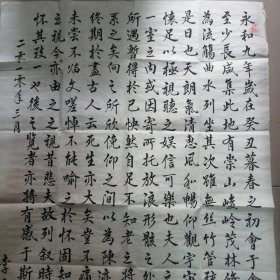 永和九年歲在癸丑暮春之初會于會
至少長咸集此地有崇山峻嶺茂林修
為流觴曲水列坐其次雖無絲竹管弦
是日也天朗氣清惠風和暢仰觀宇宙
懷足以極視聽之娛信可樂也夫人之
一室之內或因寄所托放浪形骸之外
所遇暫得於己怏然自足不知老之將
系之矣向之所欣俛仰之間以為陳跡
終期於盡古人云死生亦大矣豈不痛
未嘗不臨文嗟悼不能喻之於懷固知
之視今亦由今之視昔悲夫故列敘時
懷其致一也後之覽者亦將有感于斯
二〇一〇年三月
李